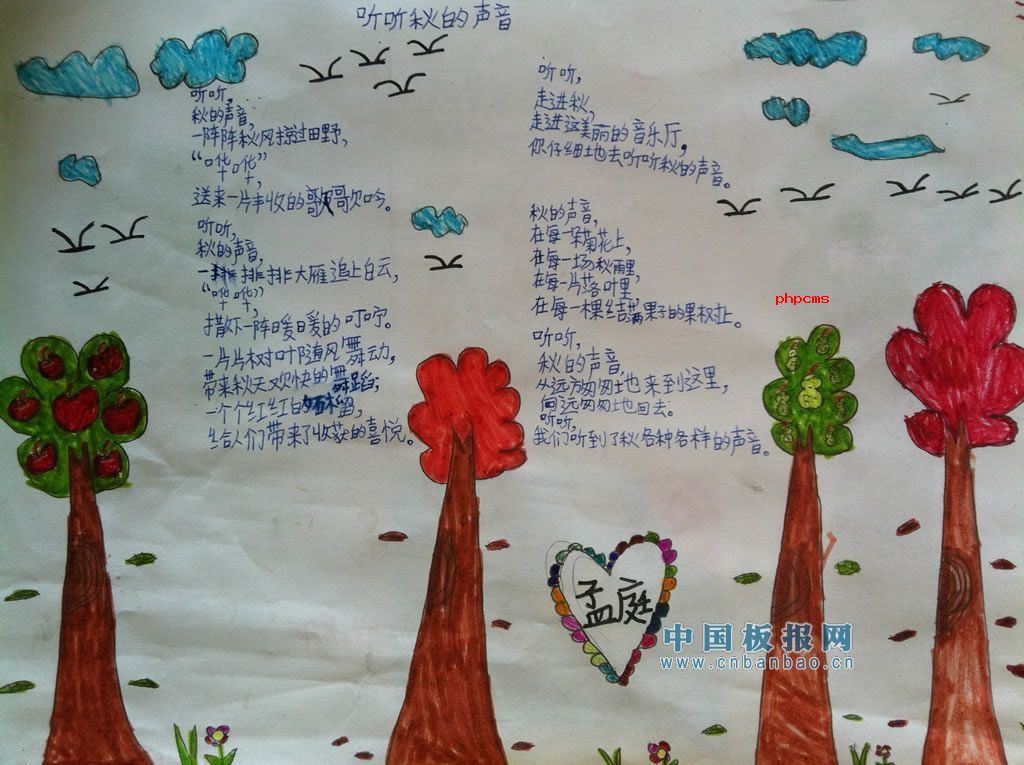 听听秋的声音
听听,
秋的声音,
一阵阵秋风掠过田野,
“哗哗”,
送来一片丰收的歌吟。
听听,
秋的声音,
一排排大雁追上白云,
“哗哗”,
撒下一阵暖暖的叮咛。
一片片树叶随风舞动,
带来秋天欢快的舞蹈;
一个个红红的石榴,
给人们带来了收获的喜悦。
听听,
走进秋,
走进这美丽的音乐厅,
你仔细地去听听秋的声音。
秋的声音,
在每一朵菊花上,
在每一场秋雨里,
在每一片落叶里
在每一棵结满果子的果树上。
听听,
秋的声音,
从远方匆匆地来到这里,
向远匆匆地回去。
听听,
我们听到了秋各种各样的声音。
phpcms
孟庭
中国板报网
www.cnbanbao.cn